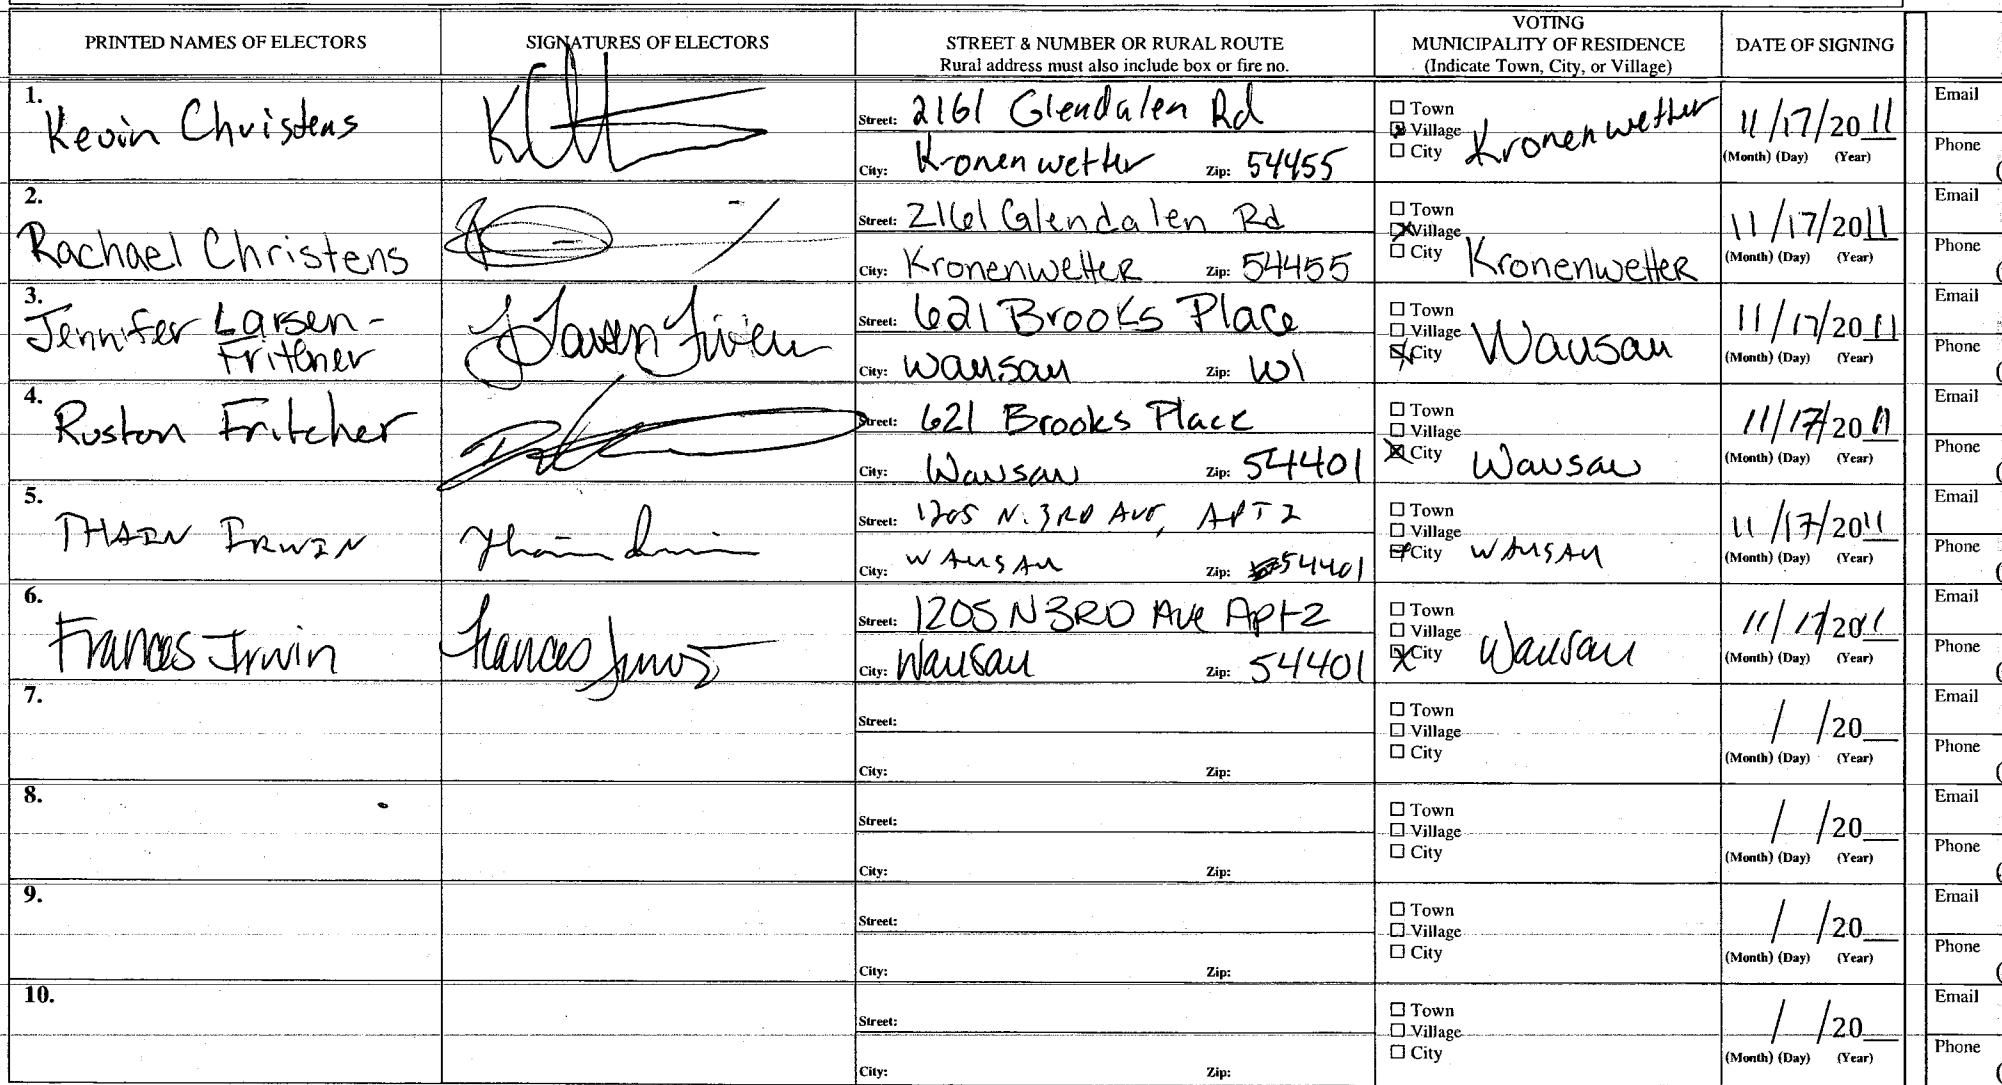 PRINTED NAMES OF ELECTORS
SIGNATURES OF ELECTORS
STREET & NUMBER OR RURAL ROUTE
Rural address must also include box or fire no.
VOTING
MUNICIPALITY OF RESIDENCE
(Indicate Town, City, or Village)
DATE OF SIGNING
1.
Kevin Christens
Street: 2161 Glendalen Rd
City: Kronenwetter Zip: 54455
☐ Town
☒ Village
☐ City
Kronenwetter
11/17/2011
(Month) (Day) (Year)
Email
Phone
2.
Rachael Christens
Street: 2161 Glendalen Rd
City: Kronenwetter Zip: 54455
☐ Town
☒ Village
☐ City
Kronenwetter
11/17/2011
(Month) (Day) (Year)
Email
Phone
3.
Jennifer Larsen-
Fritcher
Street: 621 Brooks Place
City: Wausau Zip: WI
☐ Town
☐ Village
☒ City
Wausau
11/17/2011
(Month) (Day) (Year)
Email
Phone
4.
Ruston Fritcher
Street: 621 Brooks Place
City: Wausau Zip: 54401
☐ Town
☐ Village
☒ City
Wausau
11/17/2011
(Month) (Day) (Year)
Email
Phone
5.
THAIN IRWIN
Street: 1205 N. 3RD AVE, APT 2
City: WAUSAU Zip: 54401
☐ Town
☐ Village
☒ City
WAUSAU
11/17/2011
(Month) (Day) (Year)
Email
Phone
6.
Frances Irwin
Frances Irwin
Street: 1205 N 3RD Ave Apt 2
City: Wausau Zip: 54401
☐ Town
☐ Village
☒ City
Wausau
11/17/2011
(Month) (Day) (Year)
Email
Phone
7.
Street:
City: Zip:
☐ Town
☐ Village
☐ City
/ /20__
(Month) (Day) (Year)
Email
Phone
8.
Street:
City: Zip:
☐ Town
☐ Village
☐ City
/ /20__
(Month) (Day) (Year)
Email
Phone
9.
Street:
City: Zip:
☐ Town
☐ Village
☐ City
/ /20__
(Month) (Day) (Year)
Email
Phone
10.
Street:
City: Zip:
☐ Town
☐ Village
☐ City
/ /20__
(Month) (Day) (Year)
Email
Phone